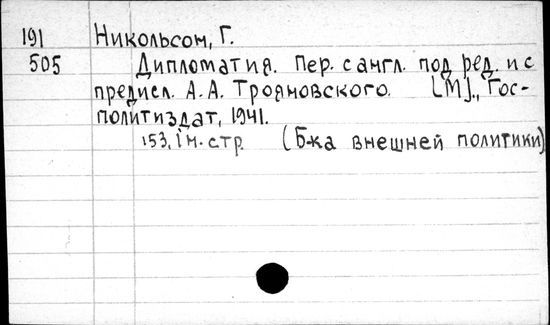 191 Никольсом, Г.
505 Дипломатия. Пер. с англ. под ред. и с
предисл. А.А. Трояновского. [М]., Гос-
политиздат, 1941.
153, 1 н. стр. (Б-ка внешней политики)